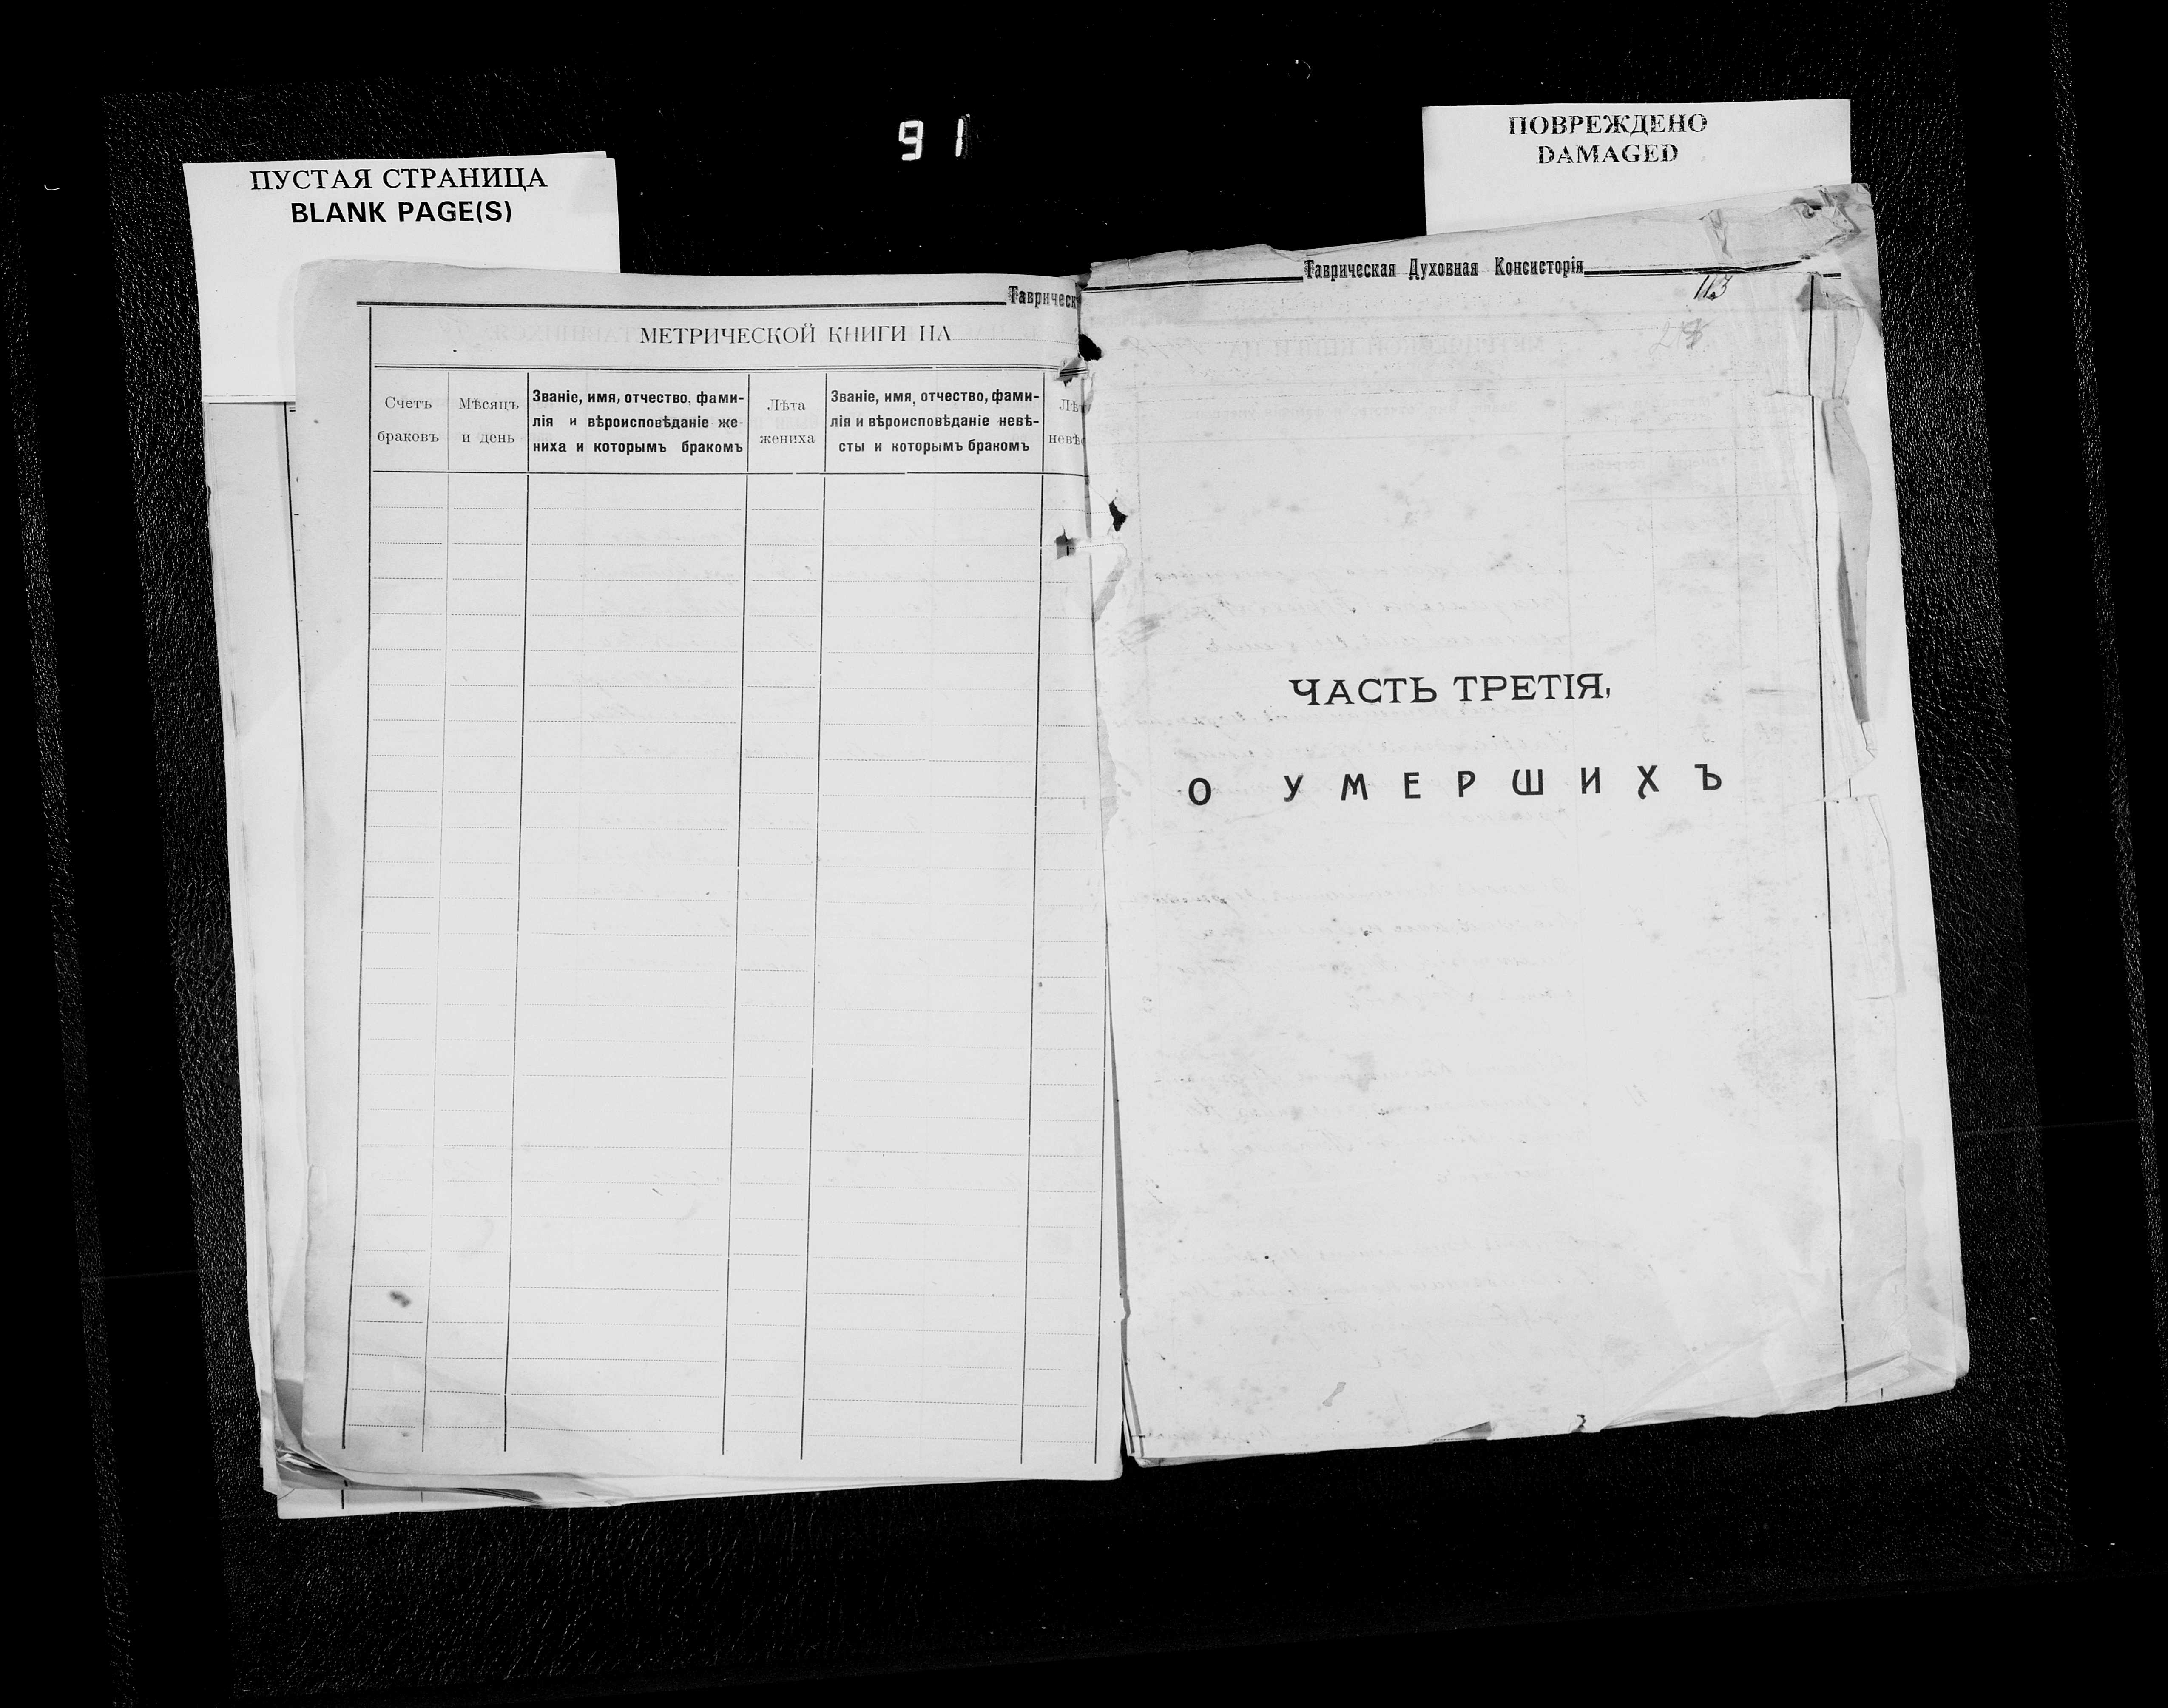 91
ПУСТАЯ СТРАНИЦА
BLANK PAGE(S)
ПОВРЕЖДЕНО
DAMAGED
Тавричес
МЕТРИЧЕСКОЙ КНИГИ НА
Счетъ браковъ
Мѣсяцъ и день
Званіе, имя, отчество, фами-
лія и вѣроисповѣданіе же-
ниха и которымъ бракомъ
Лѣта жениха
Званіе, имя, отчество, фами-
лія и вѣроисповѣданіе невѣ-
сты и которымъ бракомъ
Лѣ
невѣ
Таврическая Духовная Консисторія
113
ЧАСТЬ ТРЕТІЯ,
О УМЕРШИХЪ